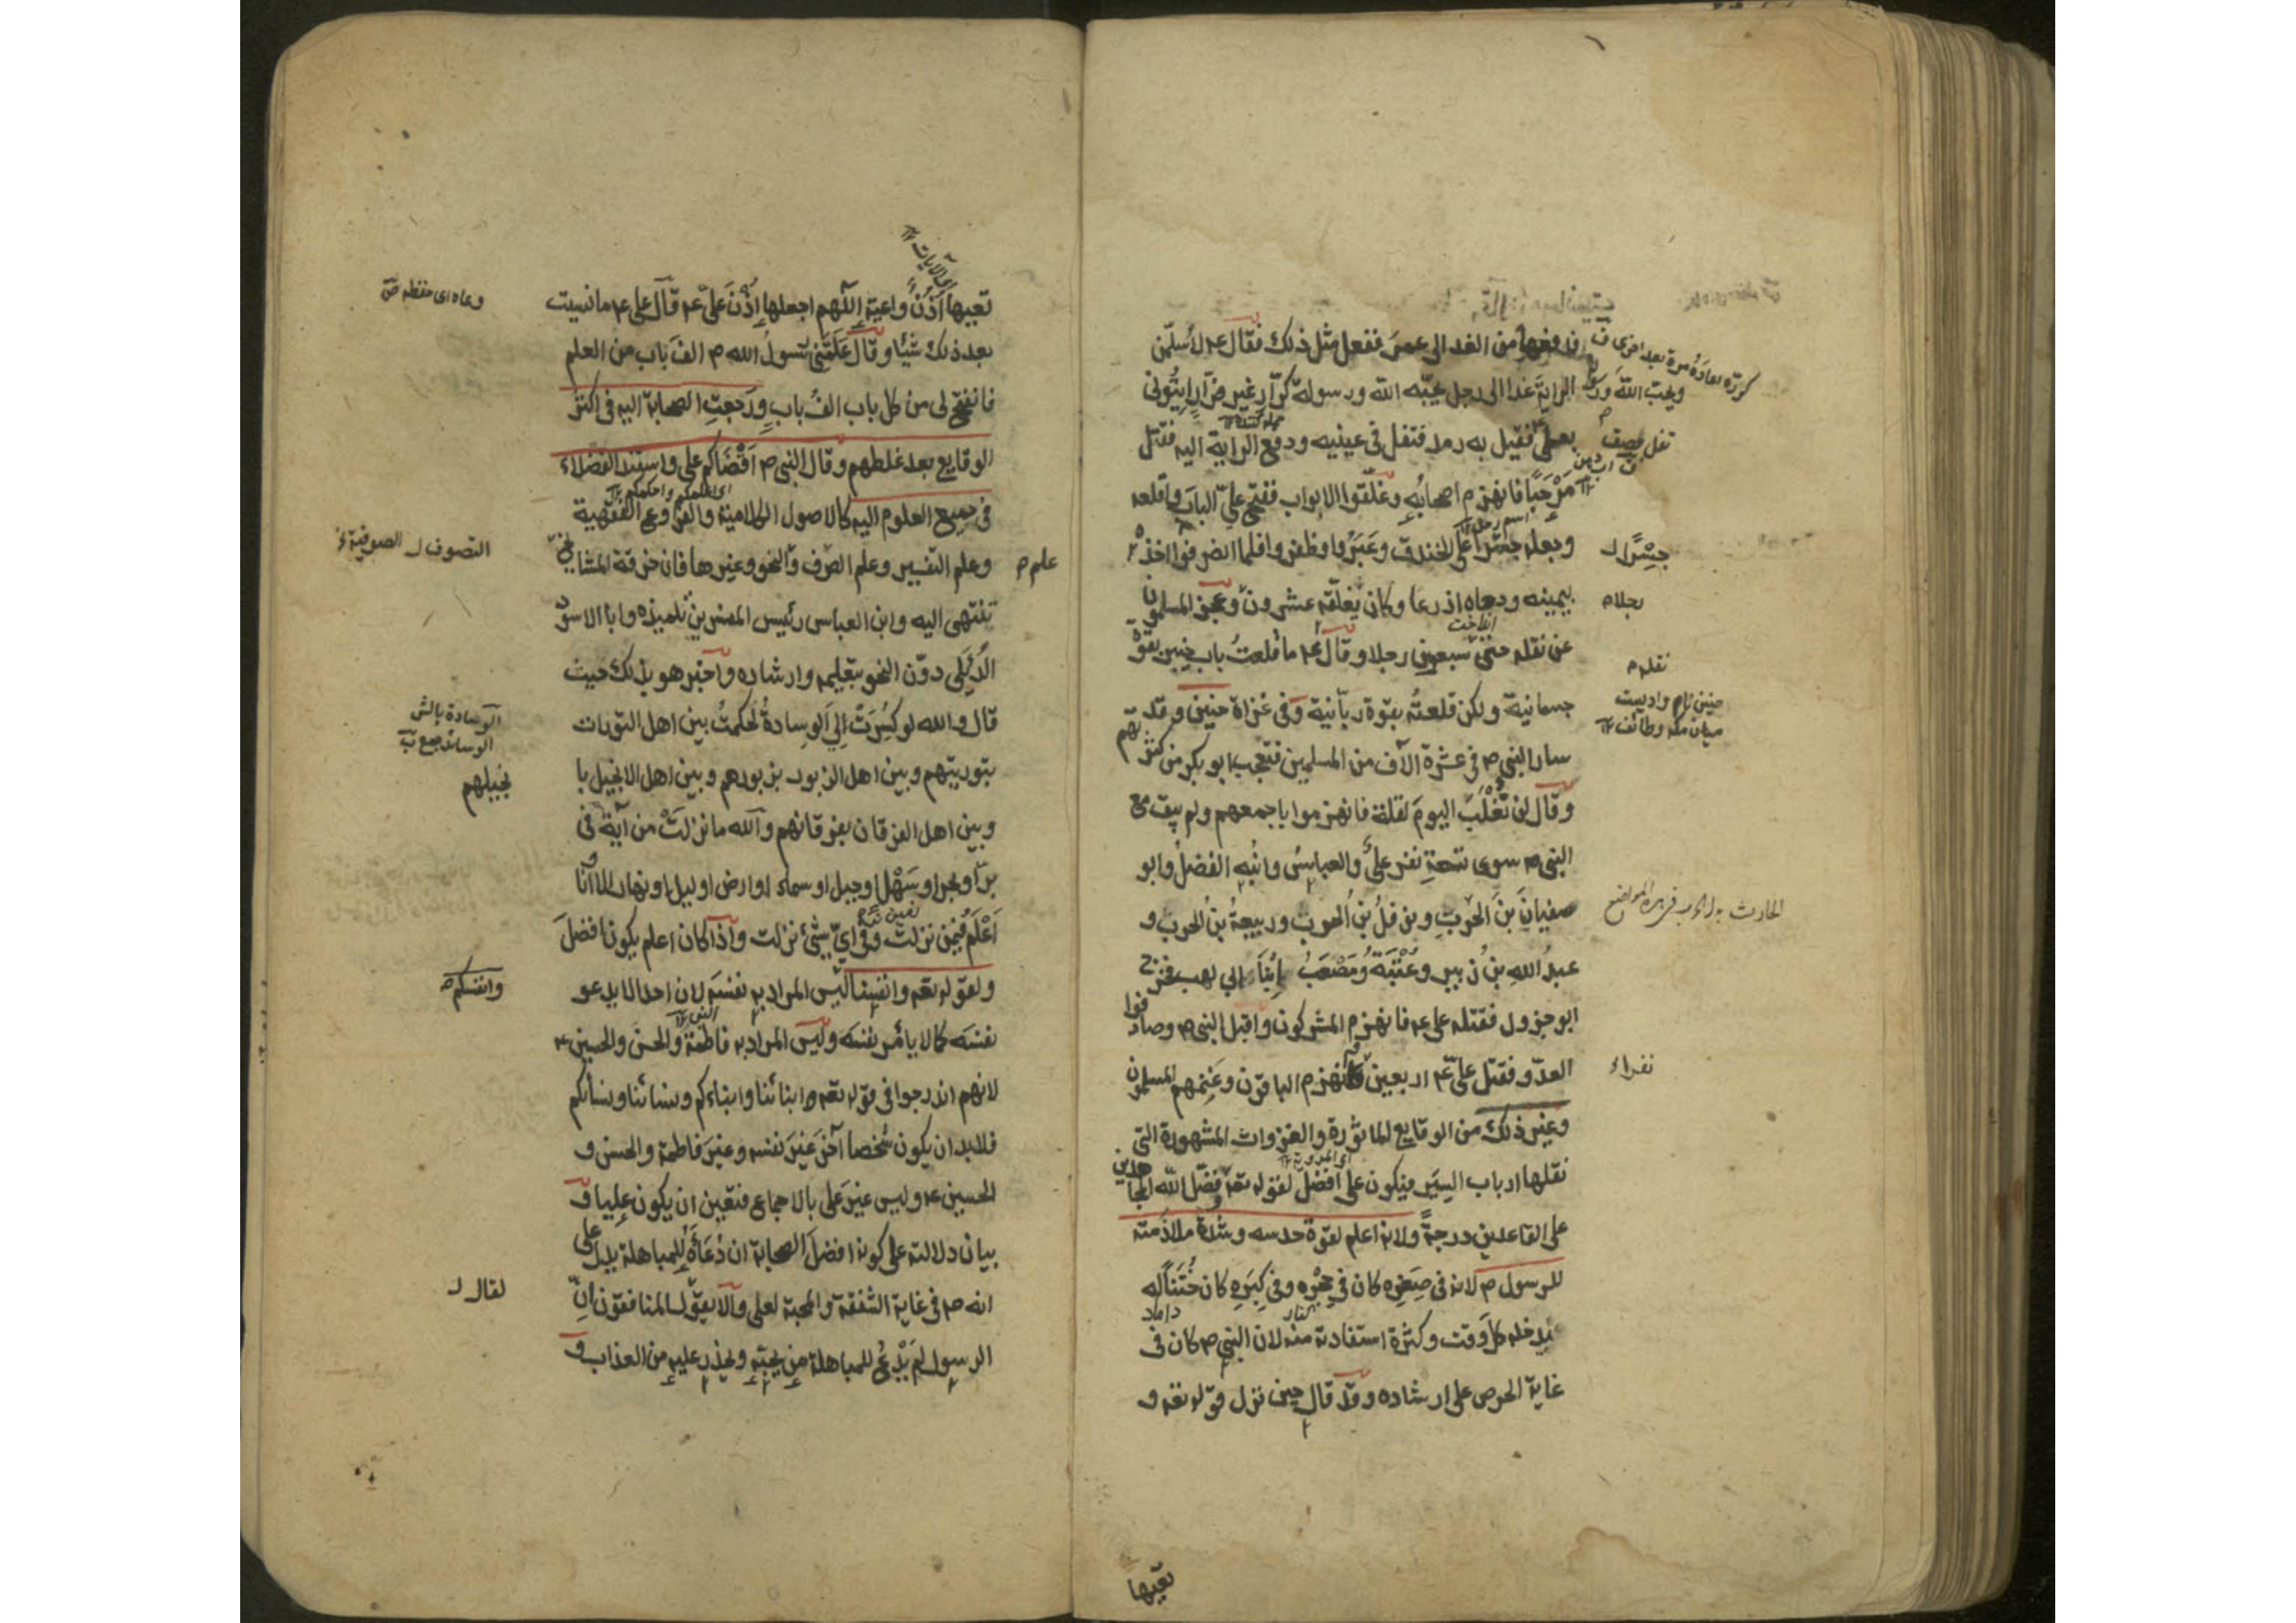 فدفعها من الغد الى عمر ففعل مثل ذلك فقال ع م لاسلّمن
الراية غدا الى رجل يحبّه الله ورسوله كرّار غير فرّار ايتونى
ويحبّ الله ورسوله
بعلى فقيل به رمد فتفل فى عينيه ودفع الراية اليه فقتل
مرحبًا فانهزم اصحابه وغلّقوا الابواب ففتح علىّ الباب واقلعه
وجعله جسرا على الخندق وعبروا وظفروا فلما انصرفوا اخذه
جسْرًا ل
بيمينه ودحاه اذرعا وكان يغلقه عشرون وعجز المسلمون
عن نقله حتى سبعون رجلا وقال ع م ما قلعتُ باب خيبر بقوّة
نقله م
حنين نام واديست
ميان مكه وطائف
جسمانية ولكن قلعتُه بقوّة ربّانية وفى غزاة حنين وقد
سار النبى ص فى عشرة آلاف من المسلمين فتعجب ابو بكر من كثرتهم
وقال لن تُغلَبَ اليومَ لقلة فانهزموا باجمعهم ولم يبق مع
النبى ص سوى تسعةِ نفر علىٌّ والعباسُ وابنُه الفضلُ وابو
سفيانَ بنَ الحَرْبِ ونوفلُ بنُ الحرب وربيعةُ بنُ الحرب و
عبدُ اللهِ بنُ زبير وعُتْبَةُ ومُصْعَبُ إبْنَا ابى لهب فخرج
ابو جرول فقتله على ع م فانهزم المشركون واقبل النبى ص وصادفوا
العدّو فقتل علىّ ع م اربعين وانهزم الباقون وغنمهم المسلمون
وغير ذلك من الوقايع الماثورة والغزوات المشهورة التى
نقلها ارباب السير فيكون على افضل لقوله تعه وفضّل الله المجاهدين
على القاعدين درجةً ولانه اعلم لقوّة حدسه وشدّة ملازمته
للرسول ص لانه فى صِغَرِه كان فى حِجْرِه وفى كِبَرِه كان خَتَنًا له
داماد
يدخله كل وقت وكثرة استفادته منه لان النبى ص كان فى
غاية الحرص على ارشاده وقد قال حين نزل قوله تعه و
تعيها
تعيها أذُنٌ واعية اللّهم اجعلها اِذْنَ علىّ ع م قال على ع م ما نسيت
وعاه اى حفظه
بعد ذلك شيئًا وقال علّمنى رسولُ الله ص الفَ باب من العلم
فانفتح لى من كل باب الفُ باب ورَجعتِ الصحابة اليه فى اكثر
الوقايع بعد غلطهم وقال النبى ص اَقْضَاكم على واستند الفضلاء
اى اعلمكم واحكمكم
فى جميع العلوم اليه كالاصول الكلامية والفروع الفقهية
وعلم التفسير وعلم الصرف والنحو وغيرها فان خرقة المشايخ
علم م
التصوف ل الصوفية
تنتهى اليه وابن العباس رئيس المفسرين تلميذه وابا الاسود
الدُئِلَى دوّن النحو بتعليمه وارشاده واخبر هو بذلك حيث
قال والله لو كُسِرَتْ اِلىَ الوِسادةُ لحكمتُ بين اهل التورات
الوسادة بالش
الوسائد جمع
بتوريتهم وبين اهل الزبور بزبورهم وبين اهل الانجيل با
نجيلهم
وبين اهل الفرقان بفرقانهم والله ما نزلتْ من آيةٍ فى
برّ او بحر او سَهْل او جبل او سماء او ارض او ليل او نهار الا وانا
اَعْلَم فيمن نزلتْ وفى اىّ شئ نزلت واذا كان اعلم يكون افضلَ
ولقوله تعه وانفسنا ليس المراد به نفسَه لان احدا لا يدعو
وانفسكم
نفسَه كما لا يأمُر نفسَه وليس المراد به فاطمة والحسن والحسين ع م
لانهم اندرجوا فى قوله تعه وابنائنا وابناءكم ونسائنا ونسائكم
فلابد ان يكون شخصا آخرَ غيرَ نفسه وغيرَ فاطمة والحسن و
الحسين ع م وليس غيرَ على بالاجماع فتعين ان يكون عليا و
بيان دلالته على كونه افضلَ الصحابة ان دُعَائَه للمباهلة يدل على
انه ص فى غاية الشفقة والمحبة لعلى والا يقول المنافقون اِنّ
لقال ل
الرسول لم يَدْعُ للمباهلة من يحبّه ويحذر عليه من العذاب و